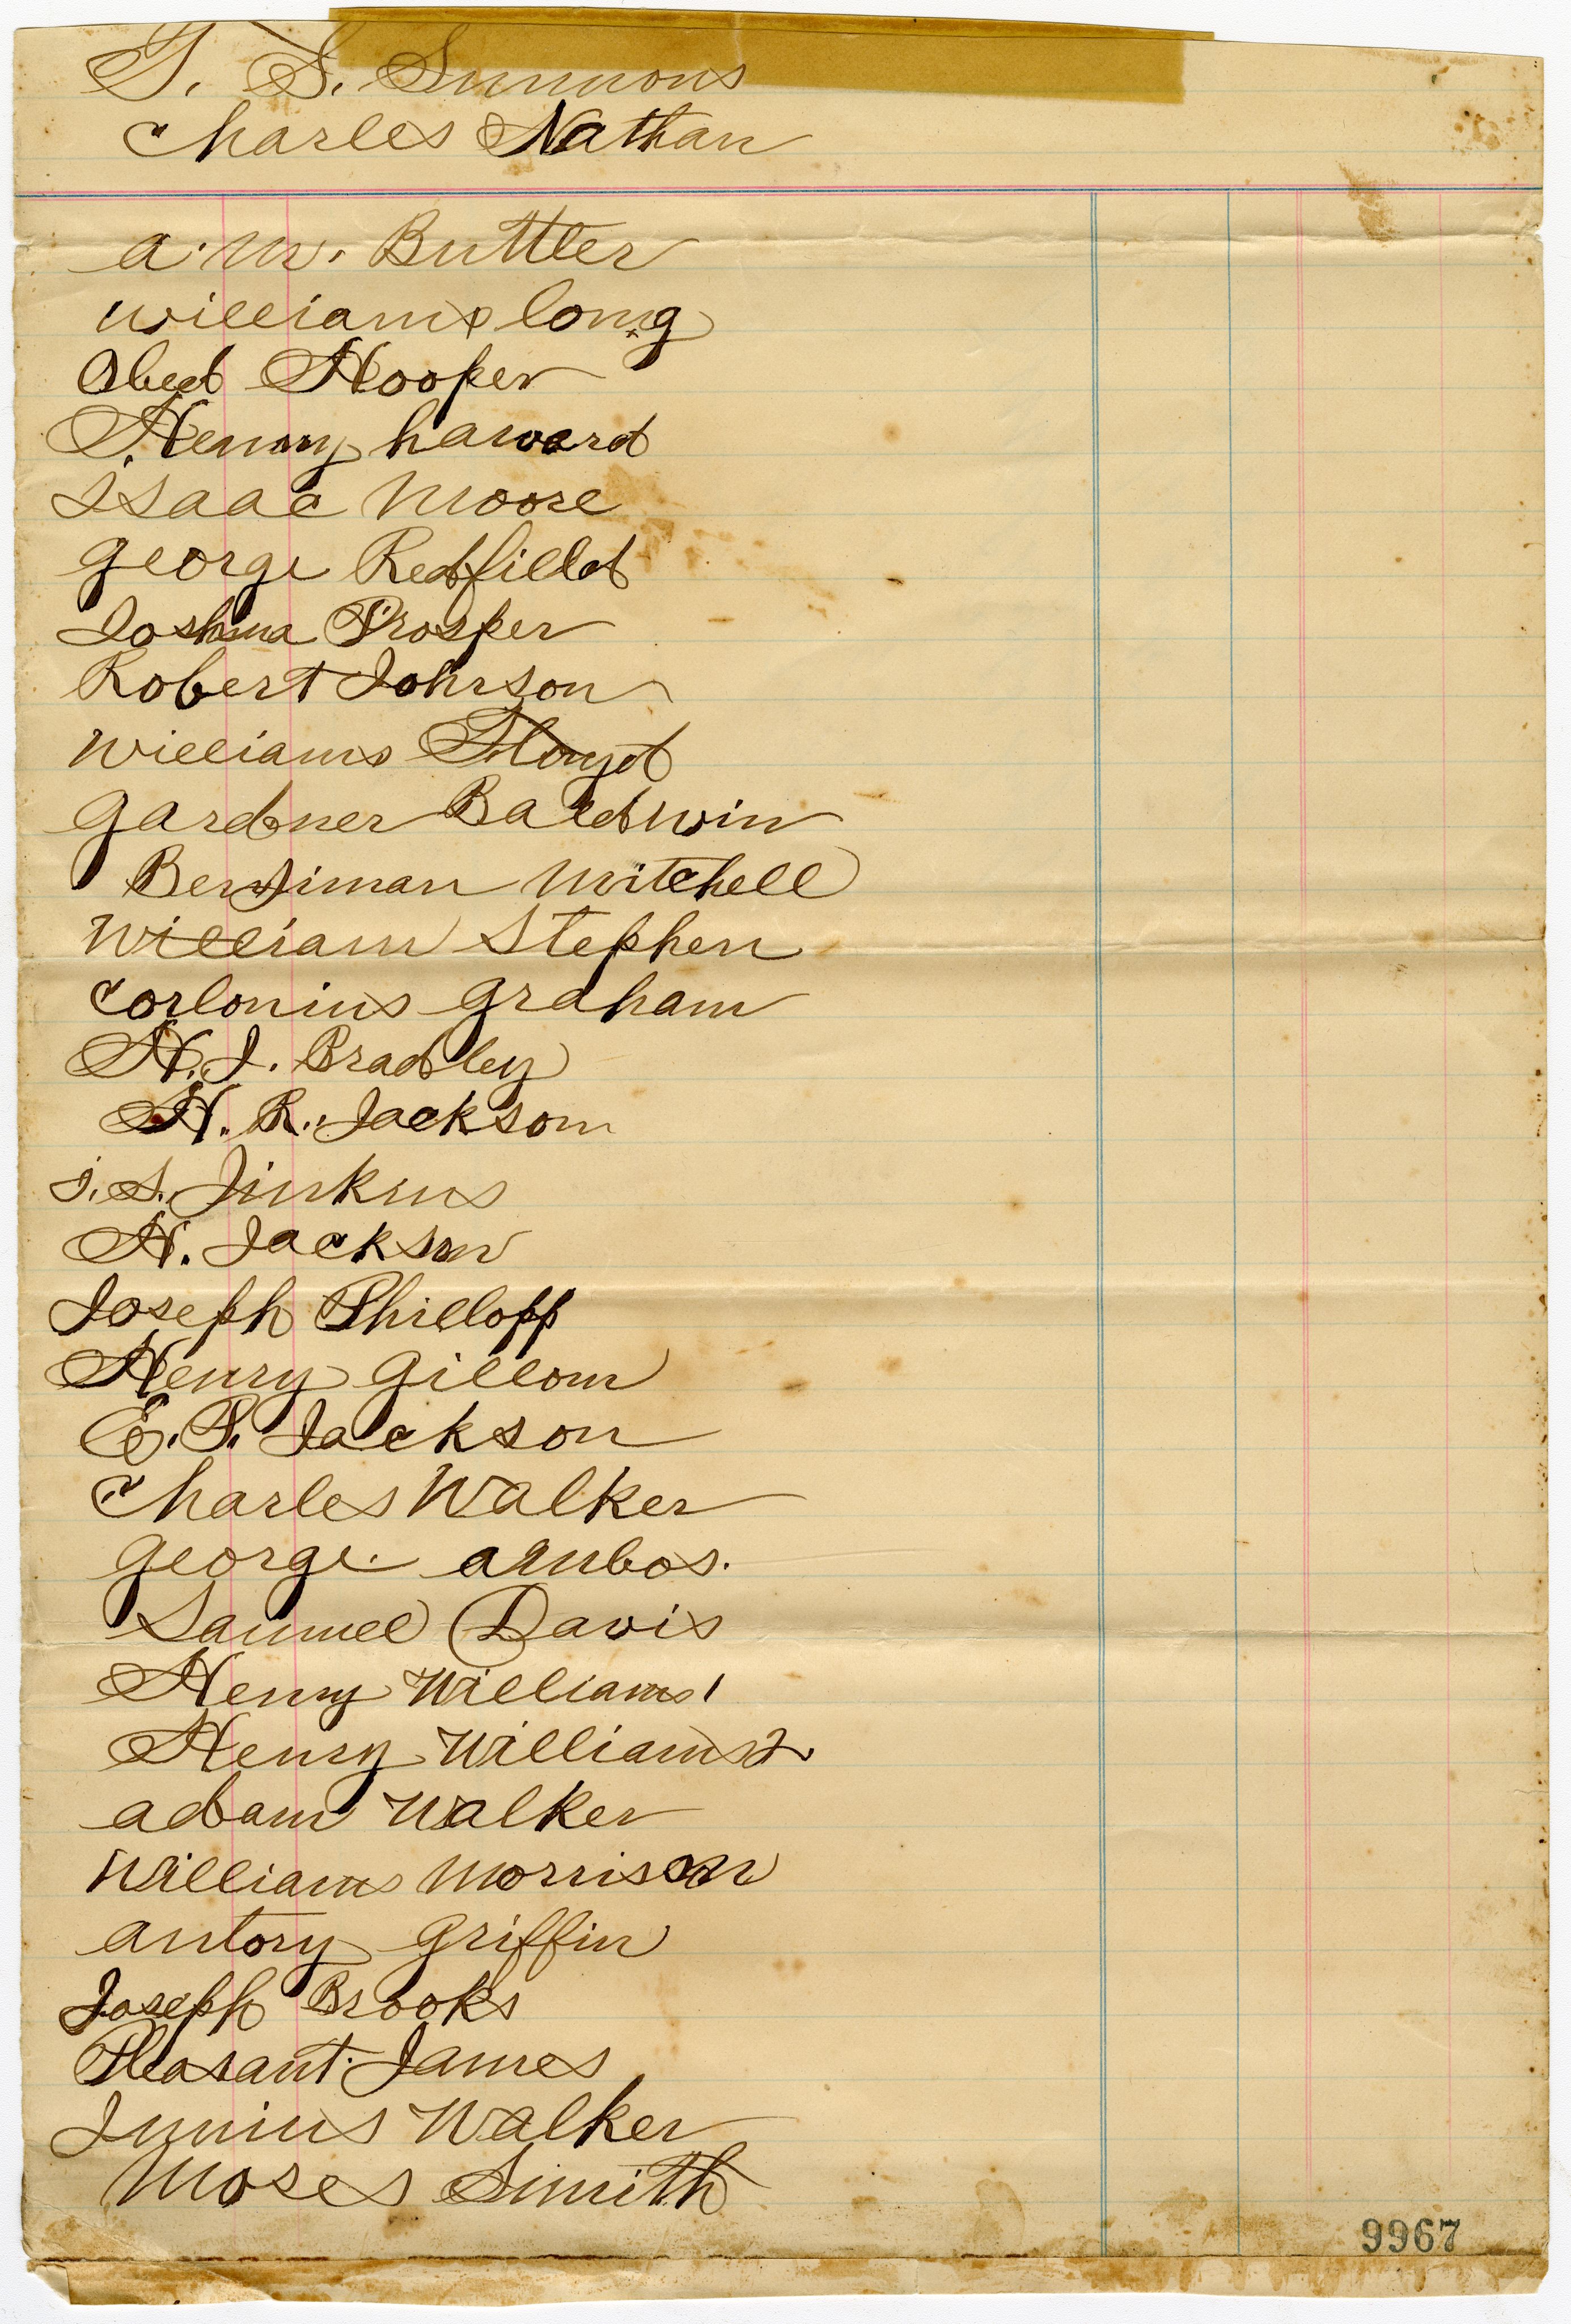 T. S. Simmons
Charles Nathan
a. M. Buttler
williams long
Obed Hooper
Henry haward
Isaac Moore
george Redfilld
Joshua Prosper
Robert Johnson
Williams Floyd
gardner Baldwin
Berjiman Mitchell
William Stephen
Corlonius graham
H. J. Bradley
H. R. Jackson
J. S. Jinkins
H. Jackson
Joseph Phillopp
Henry gillom
E. P. Jackson
Charles Walker
george ambos.
Samuel Davis
Henry Williams 1
Henry Williams 2
adam Walker
Williams Morrison
antony griffin
Joseph Brooks
Pleasant James
Junius Walker
Moses Smith
9967